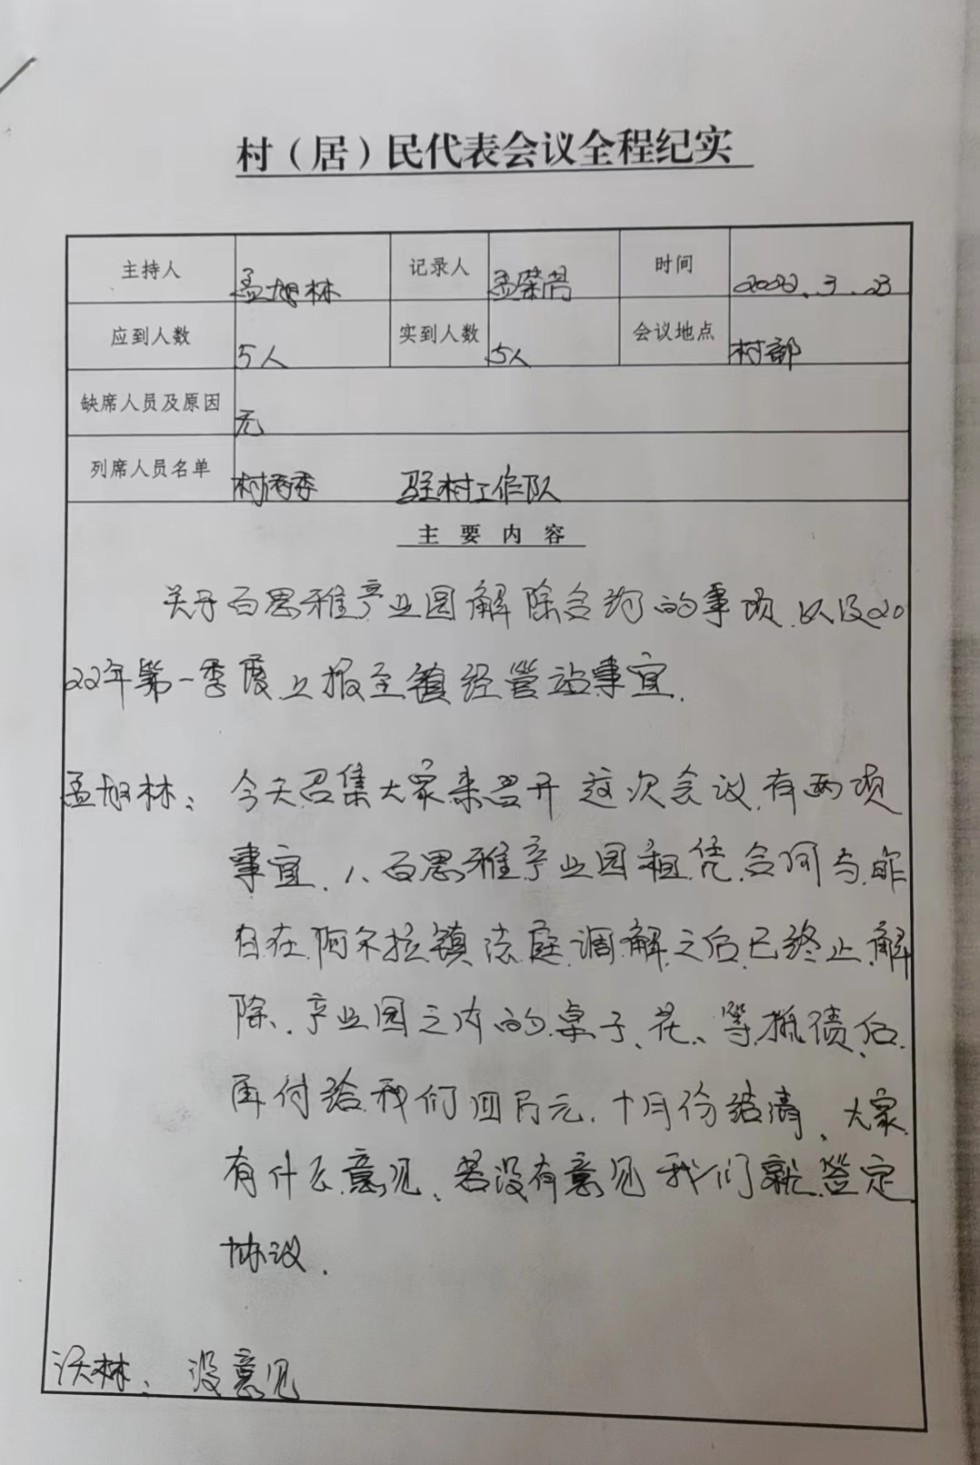 村（居）民代表会议全程纪实
主持人 孟旭林 记录人 孟荣 时间 2022.3.23
应到人数 5人 实到人数 5人 会议地点 村部
缺席人员及原因 无
列席人员名单 村两委 驻村工作队
主要内容
关于百思雅产业园解除合约的事项.以及20
22年第一季度上报至镇经管站事宜.
孟旭林：今天召集大家来召开这次会议.有两项
事宜.1、百思雅产业园租凭合同与昨
日在阿尔拉镇法庭调解之后已终止解
除.产业园之内的桌子、花、等抵债后.
再付给我们四万元.十月份结清、大家
有什么意见、若没有意见我们就签定
协议.
沃林：没意见